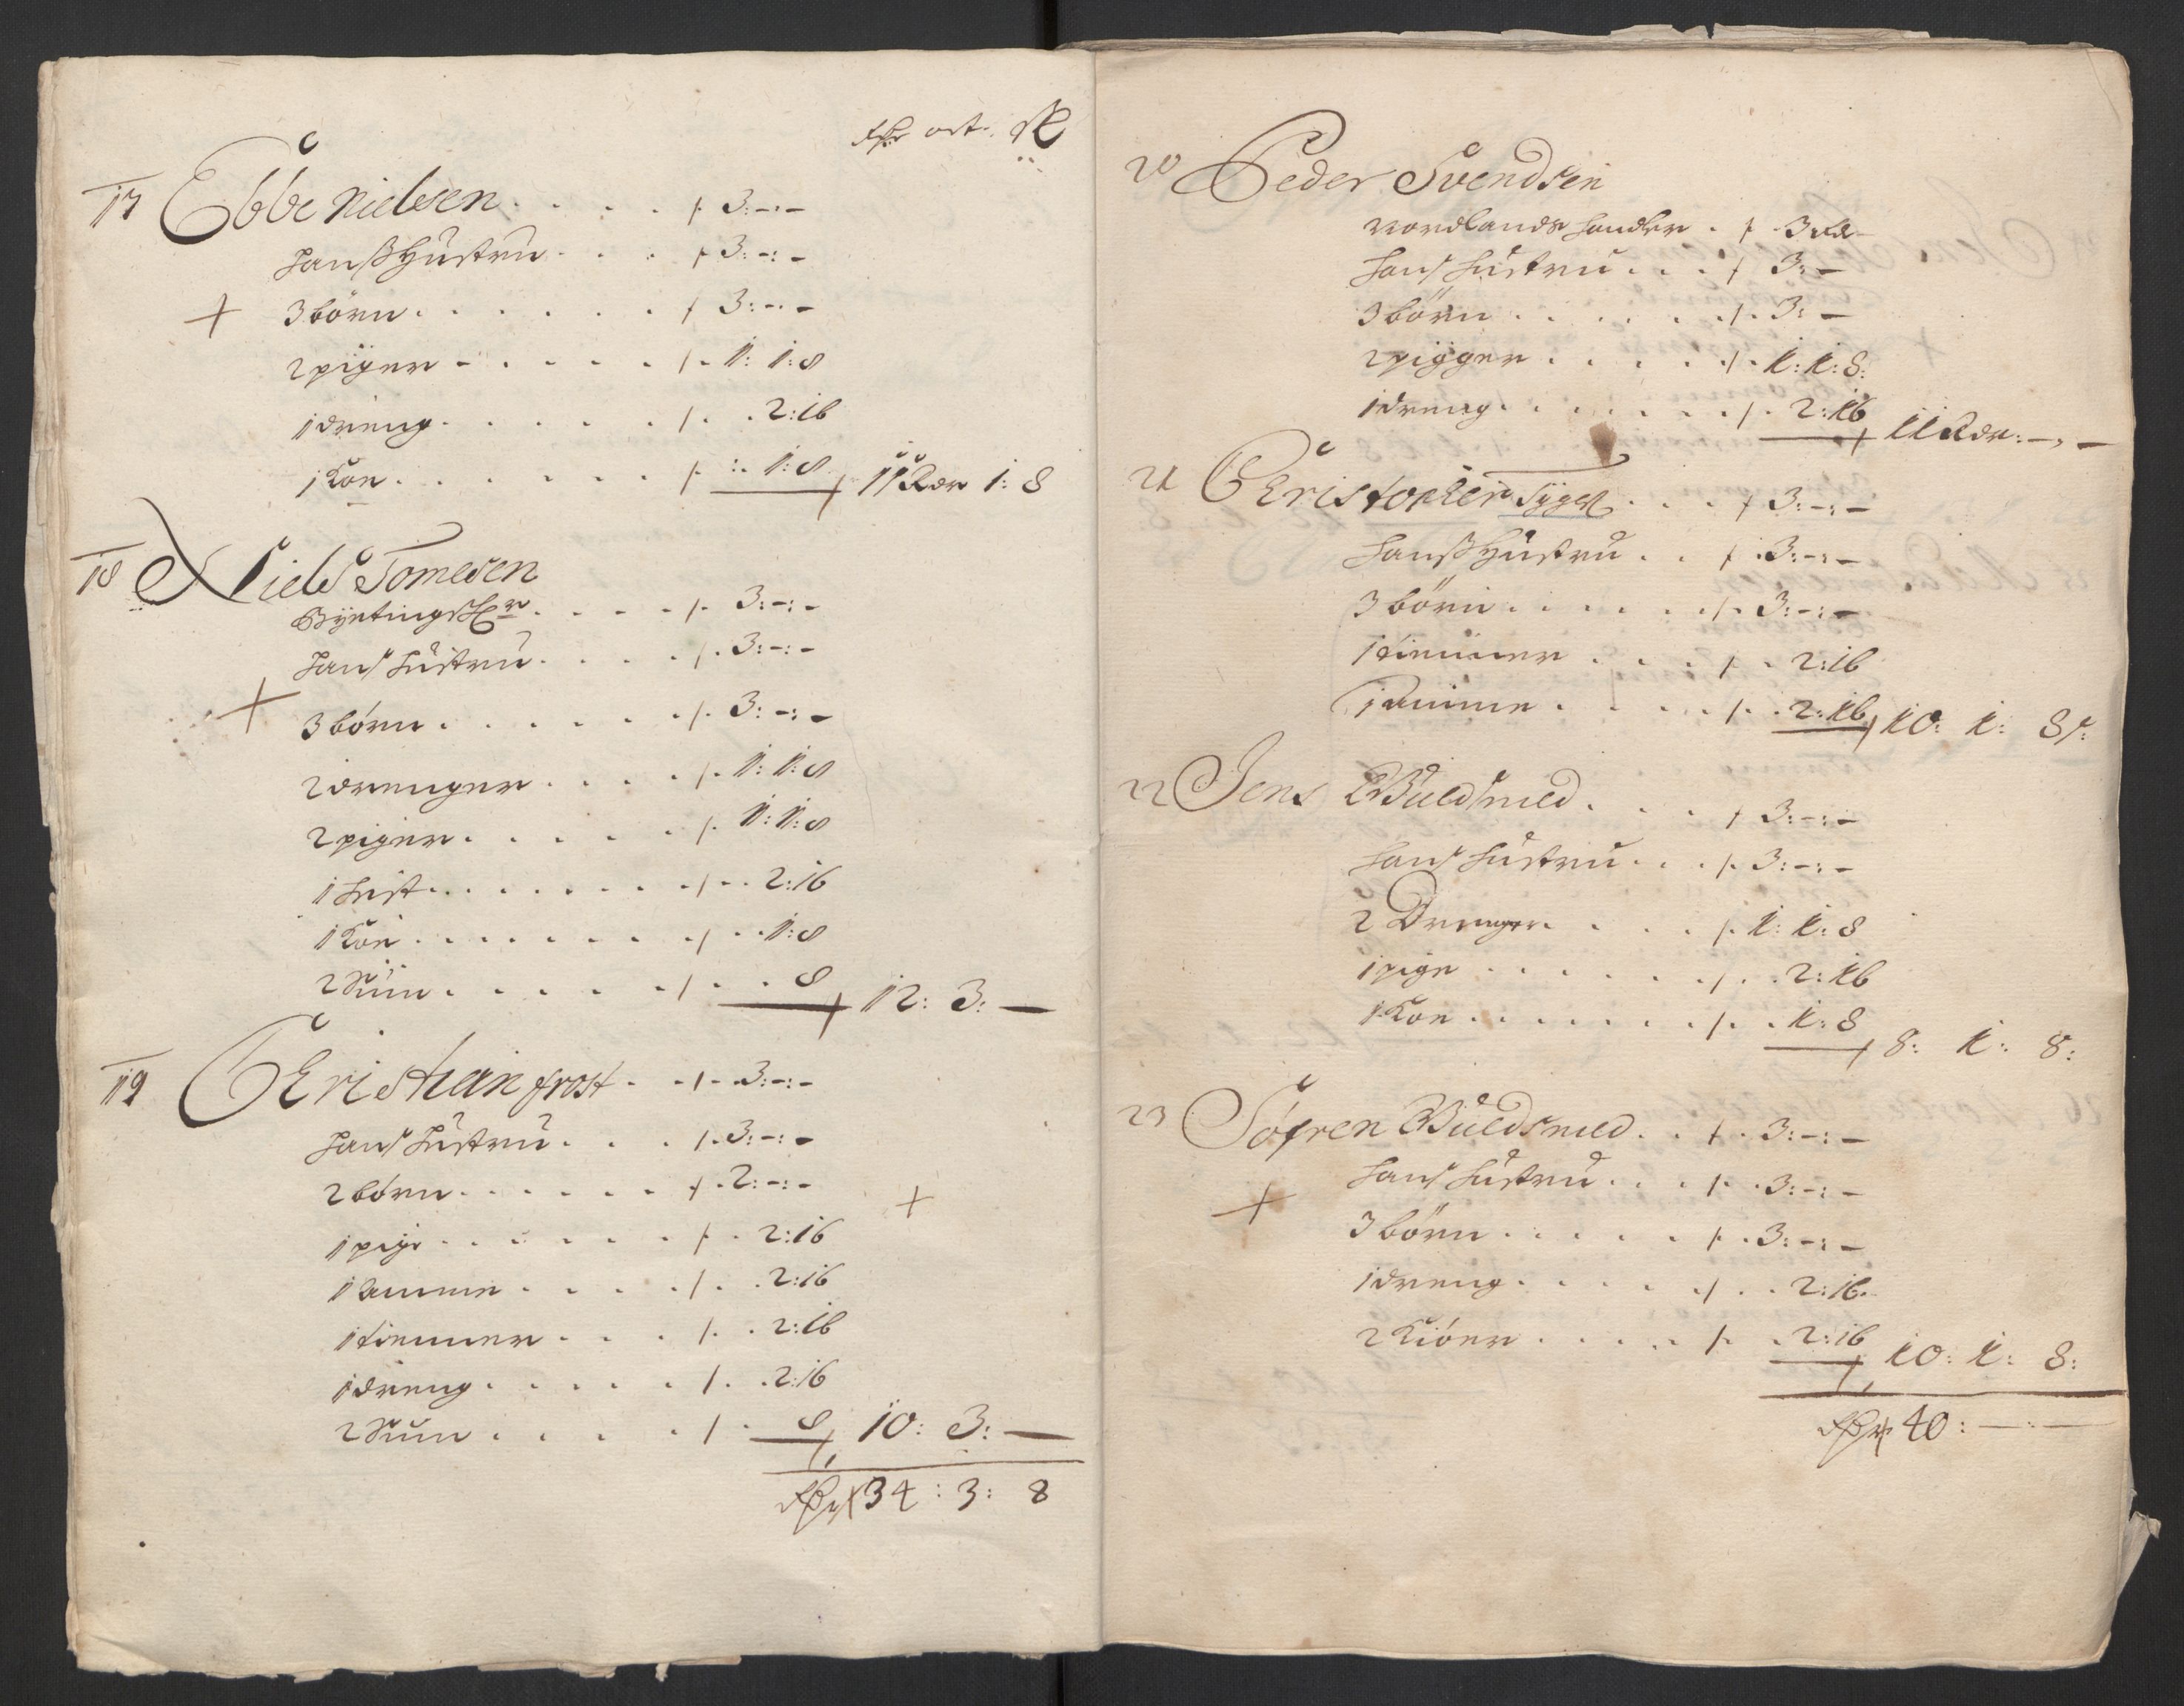 Rdr ort. ß
17 Ebbe Nielsen . . . . /. 3:-:-
Hanß Hustru . . . /. 3:-:-
3 börn . . . . . . /. 3:-:-
2 piger - . . . . /. 1: 1: 8
1 dreng . . . . . /. . 2: 16
1 Koe . . . . . . /. :. 1: 8 / 11 Rdr 1: 8
18 Niels Tomesen
Byetingsskr . . . . /. 3:-:-
Hans Hustru . . . . /. 3:-:-
3 börn . . . . . . /. 3:-:-
2 drenger . . . . /. 1: 1: 8
2 piger . . . . . /. 1: 1: 8
1 Hest . . . . . . /. . 2: 16
1 Koe . . . . . . /. . 1: 8
2 Suin . . . . . /. . 8 / 12: 3: —
19 Christian frost . . /. 3:-:-
Hans Hustru . . . /. 3:-:-
2 börn . . . . . . /. 2:-:-
1 pige . . . . . . /. . 2: 16
1 amme . . . . /. . 2: 16
1 tienner . . . /. . 2: 16
1 dreng . . . . . /. . 2: 16
2 Suin . . . . /. 8 / 10: 3: —
Rdr 34: 3: 8
20 Peder Svendsen
Nordlands handler . /. 3 Rd
Hans Hustru . . . /. 3: —
3 börn . . . . . /. 3: —
2 pigger . . . . /. 1: 1: 8:
1 dreng . . . . . . /. 2: 16 / 11 Rdr: —: —
21 Christopher Tygeß . . . /. 3:-:-
Hanß Hustru . . /. 3:-:-
3 börn . . . . . . /. 3:-:-
1 tienner . . . /. . 2: 16
1 amme . . . . /. . 2: 16 / 10: 1: 8 ß:
22 Jens Guldsmed . . . /. 3:-:-
Hans Hustru . . . /. 3:-:-
2 Drenger . . . . /. 1: 1: 8
1 pige . . . . . /. . 2: 16
1 Koe . . . . . . /. . 1: 8 / 8: 1: 8:
23 Söfren Guldsmed . . /. 3:-:-
Hans Hustru . . . /. 3:-:-
3 börn . . . . . /. 3:-:-
1 dreng . . . . . /. . 2: 16.
2 Kiöer . . . . . /. . 2: 16 / 10: 1: 8:
Rdr 40: —:—